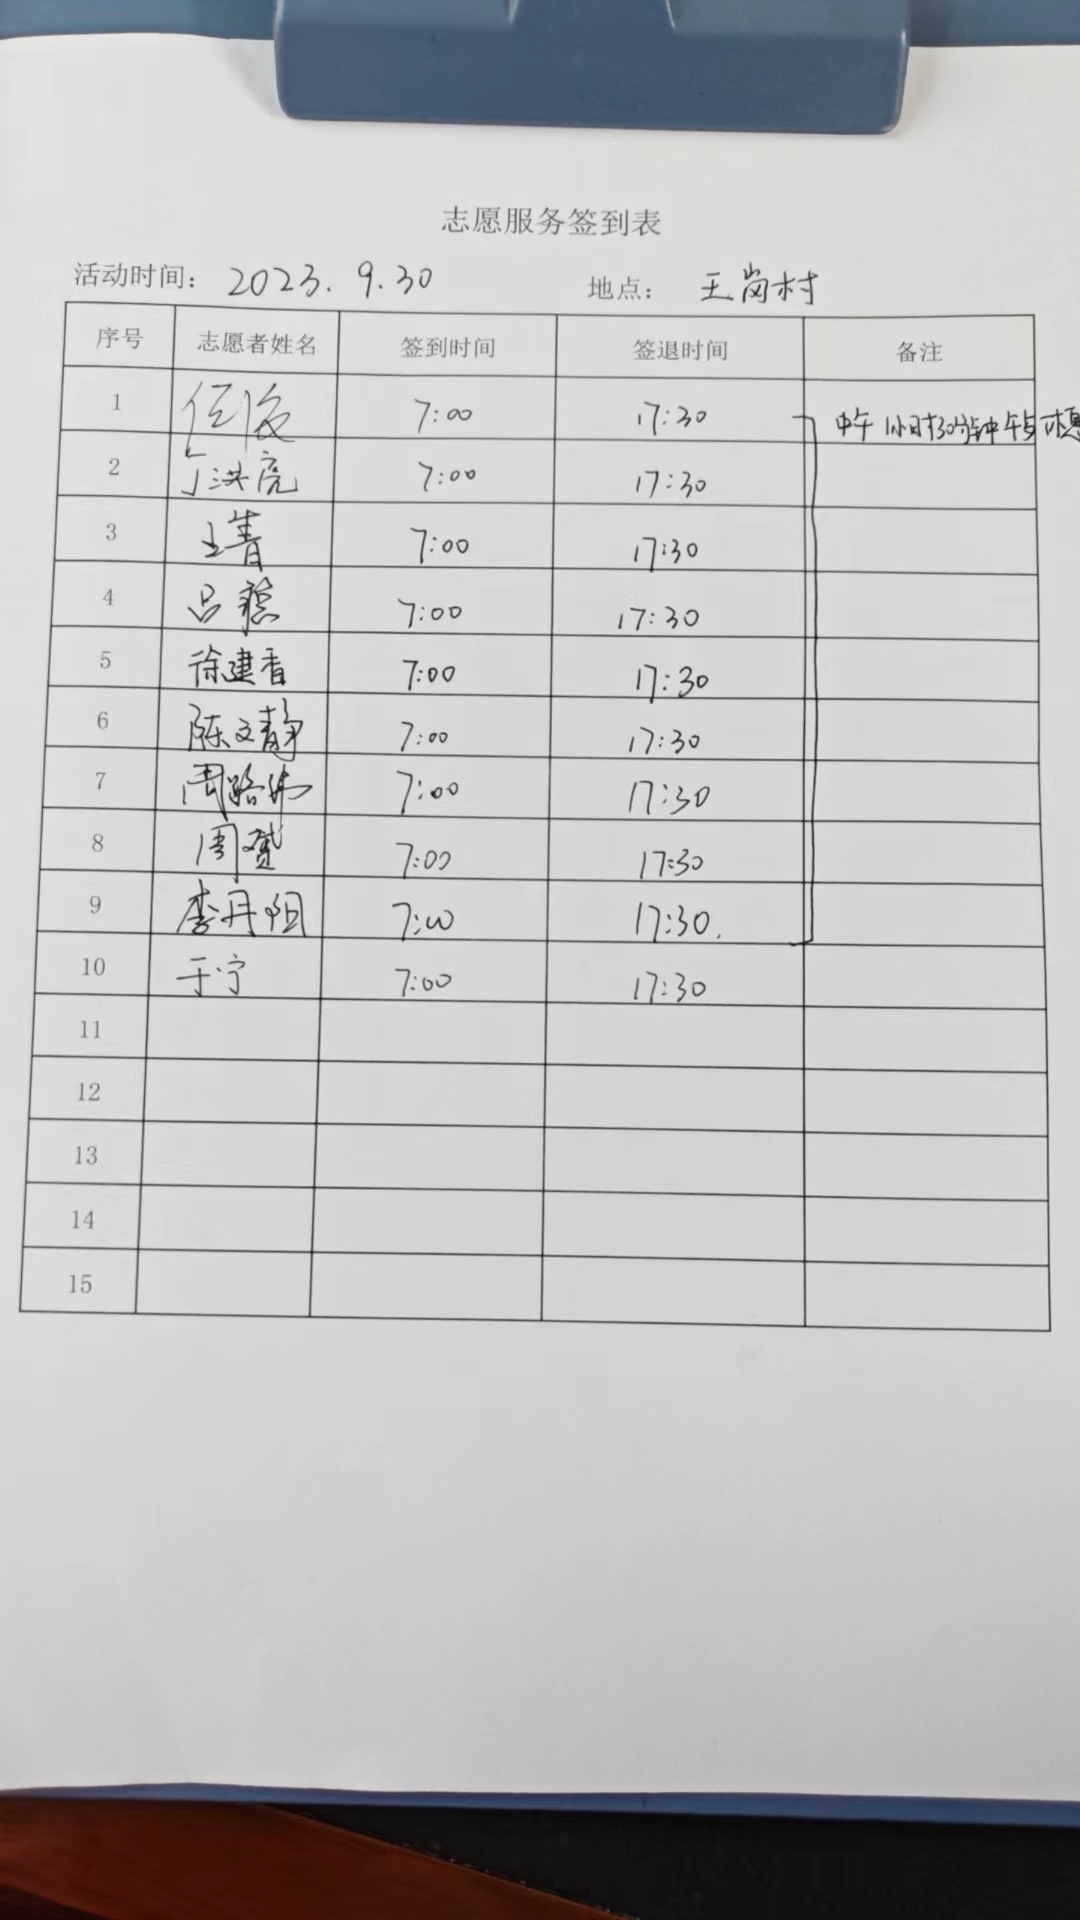 志愿服务签到表
活动时间: 2023.9.30 地点: 王岗村
序号 志愿者姓名 签到时间 签退时间 备注
1 任俊 7:00 17:30 中午1小时30分钟午与休息
2 丁洪亮 7:00 17:30
3 王青 7:00 17:30
4 吕 7:00 17:30
5 徐建香 7:00 17:30
6 陈文静 7:00 17:30
7 周路 7:00 17:30
8 周赟 7:00 17:30
9 李丹阳 7:00 17:30.
10 于宁 7:00 17:30
11
12
13
14
15